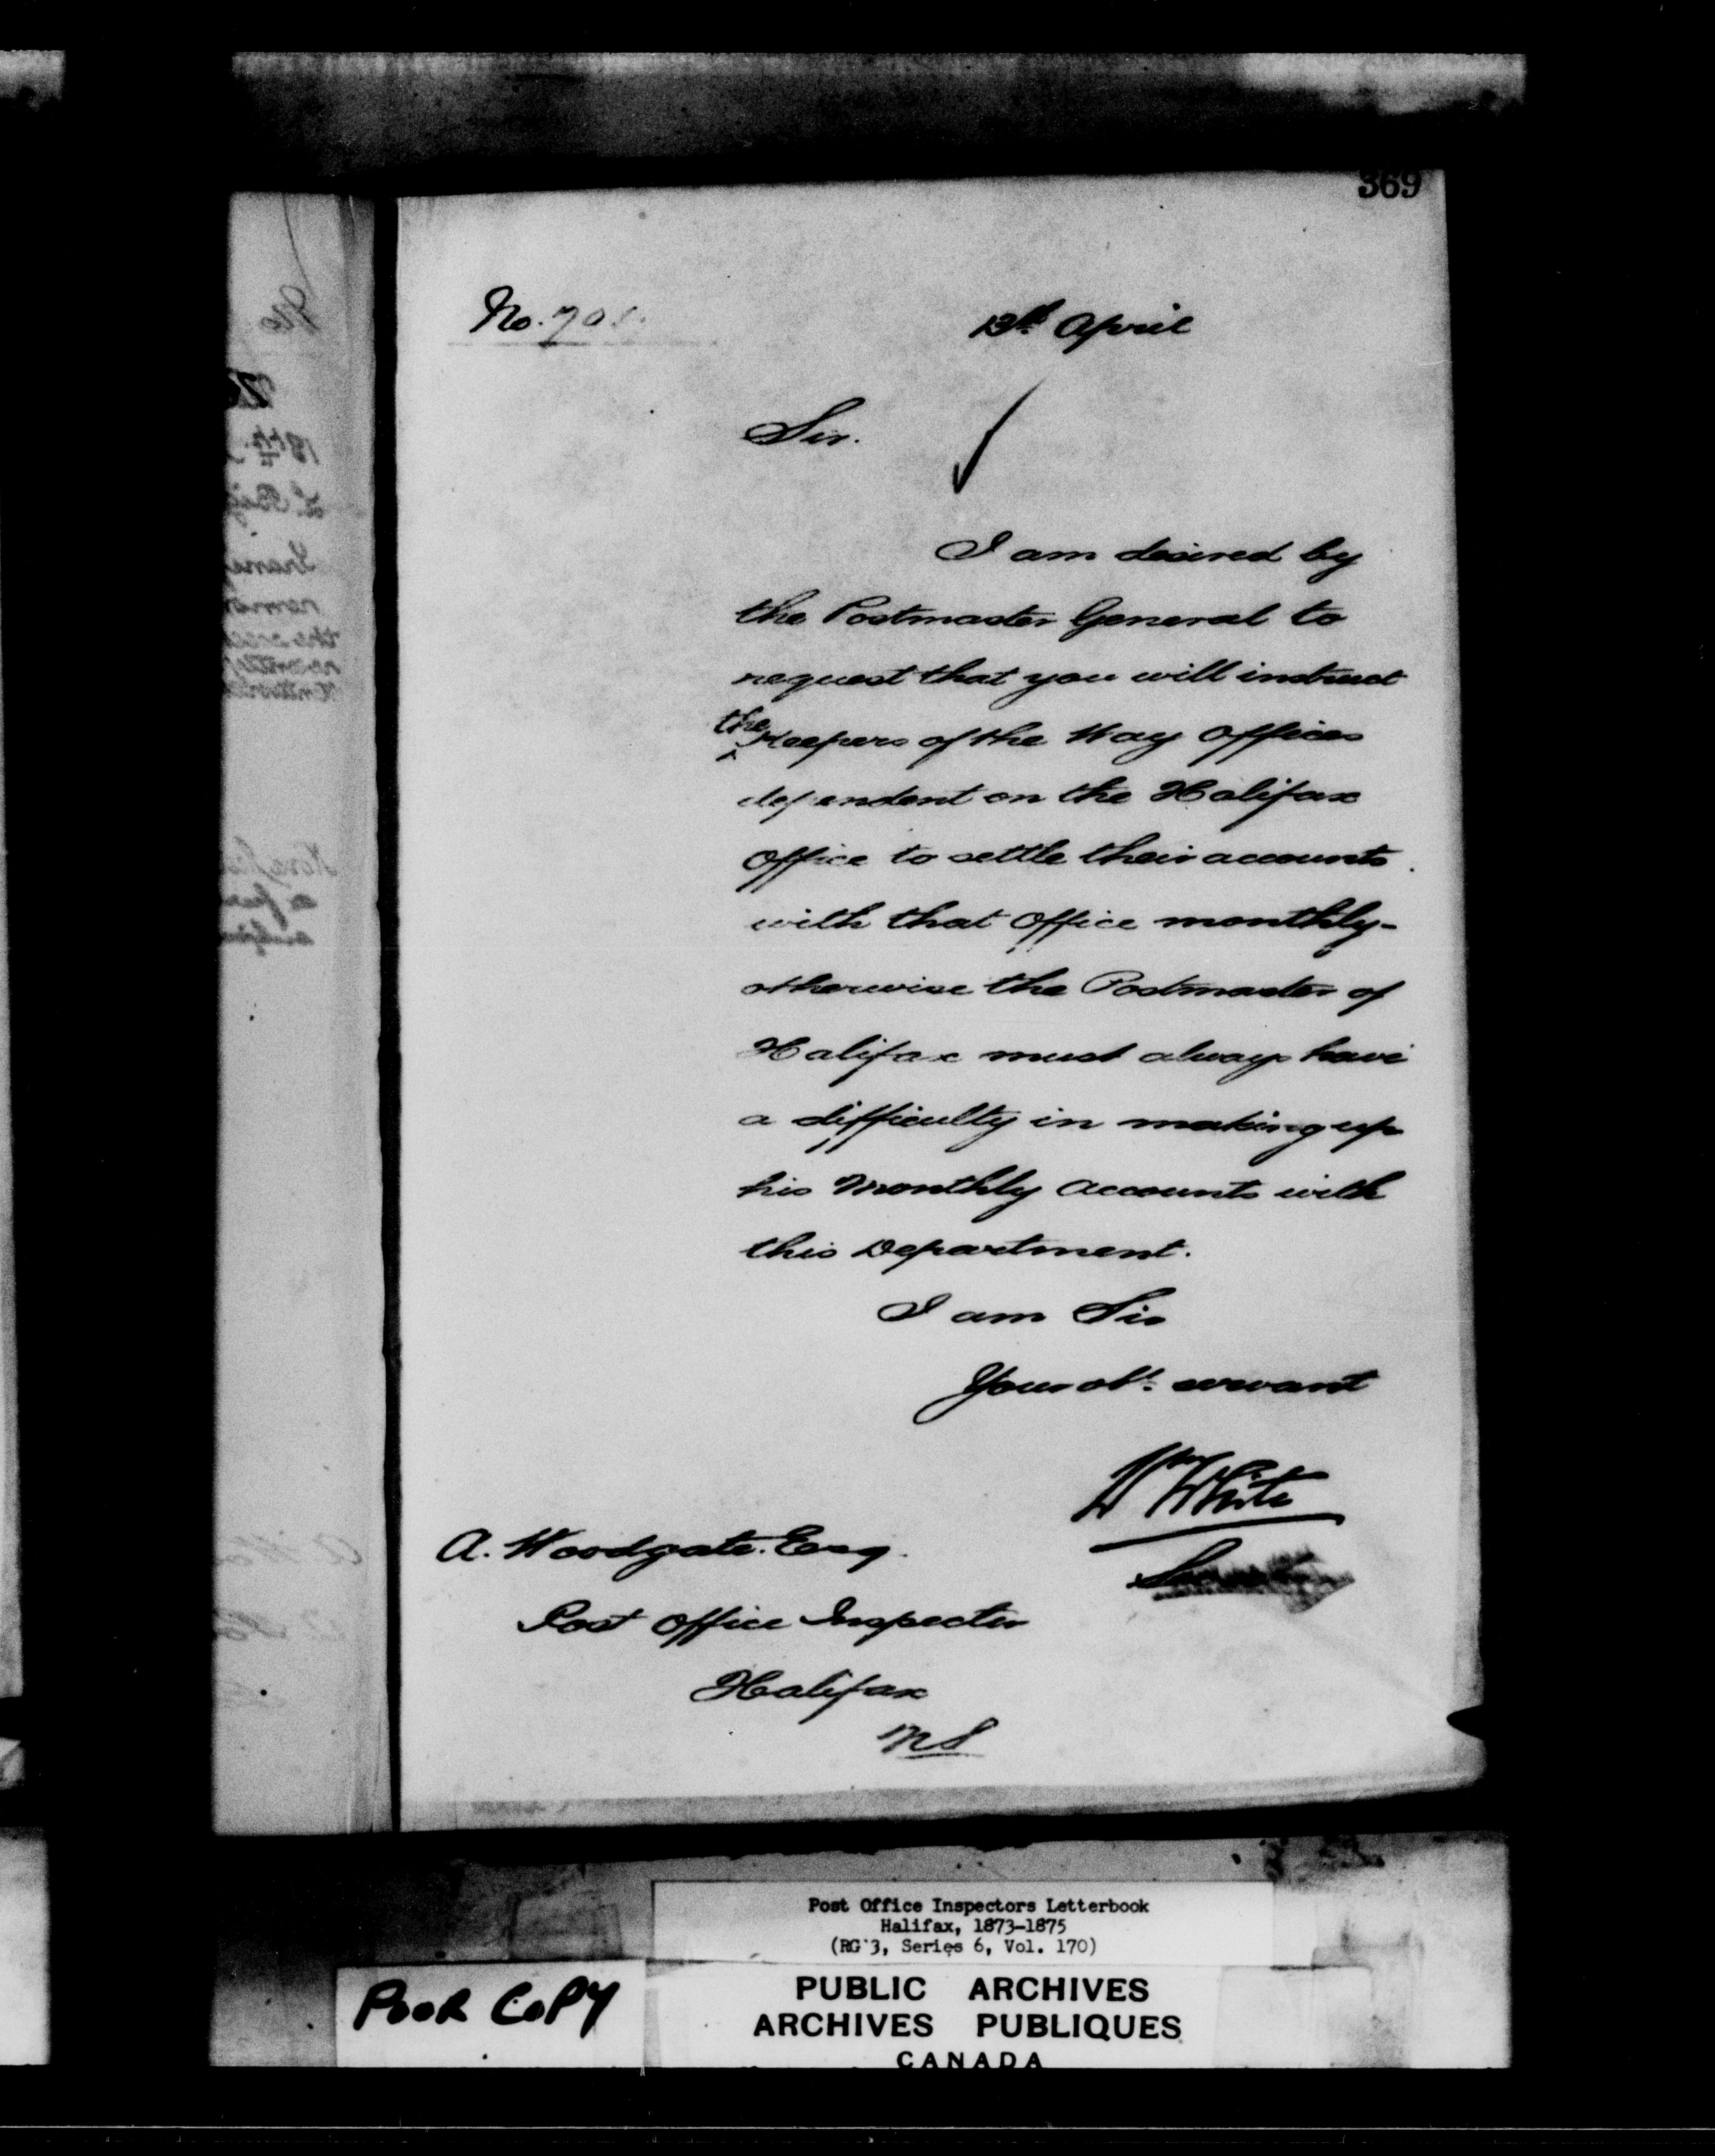 369
No. 705.
13th April
Sir.
I am desired by
the Postmaster General to
request that you will instruct
the Keepers of the Way Offices
dependent on the Halifax
Office to settle their accounts
with that Office monthly-
otherwise the Postmaster of
Halifax must always have
a difficulty in making up
his Monthly Accounts with
this Department.
I am Sir
Your obt. servant
Wm White
A. Woodgate. Esq.
Post Office Inspector
Halifax
NS
Post Office Inspectors Letterbook
Halifax, 1873-1875
(RG 3, Series 6, Vol. 170)
POOR COPY
PUBLIC ARCHIVES
ARCHIVES PUBLIQUES
CANADA